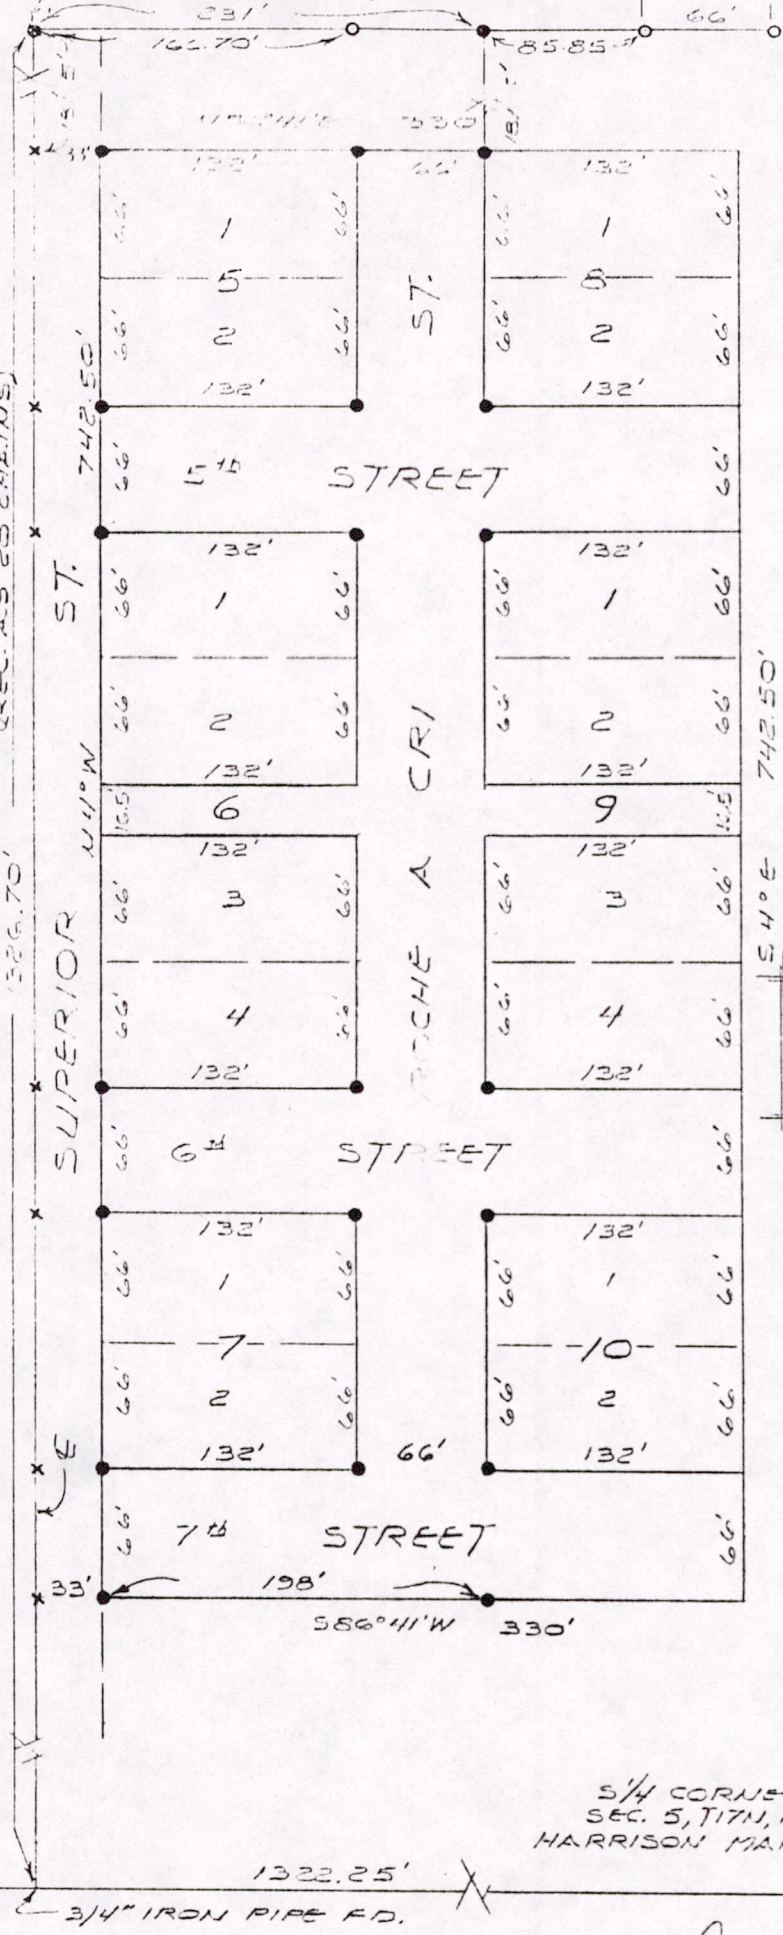 231'
66'
165.70'
85.85
330'
33'
132'
66'
132'
66'
66'
66'
66'
1
1
5
8
2
2
66'
66'
66'
66'
132'
132'
742.50'
ST.
66'
5th
STREET
66'
132'
132'
66'
1
66'
66'
1
66'
ST.
66'
2
66'
66'
2
66'
132'
132'
742.50'
N4°W
16.5'
6
9
16.5'
132'
132'
ROCHE A CRI
66'
3
66'
66'
3
66'
S4°E
1326.70'
SUPERIOR
66'
4
66'
66'
4
66'
132'
132'
66'
6th
STREET
66'
132'
132'
66'
1
66'
66'
1
66'
7
10
66'
2
66'
66'
2
66'
132'
66'
132'
66'
7th
STREET
66'
33'
198'
S86°41'W 330'
S1/4 CORNE
SEC. 5, T17N,
HARRISON
1322.25'
3/4" IRON PIPE FD.